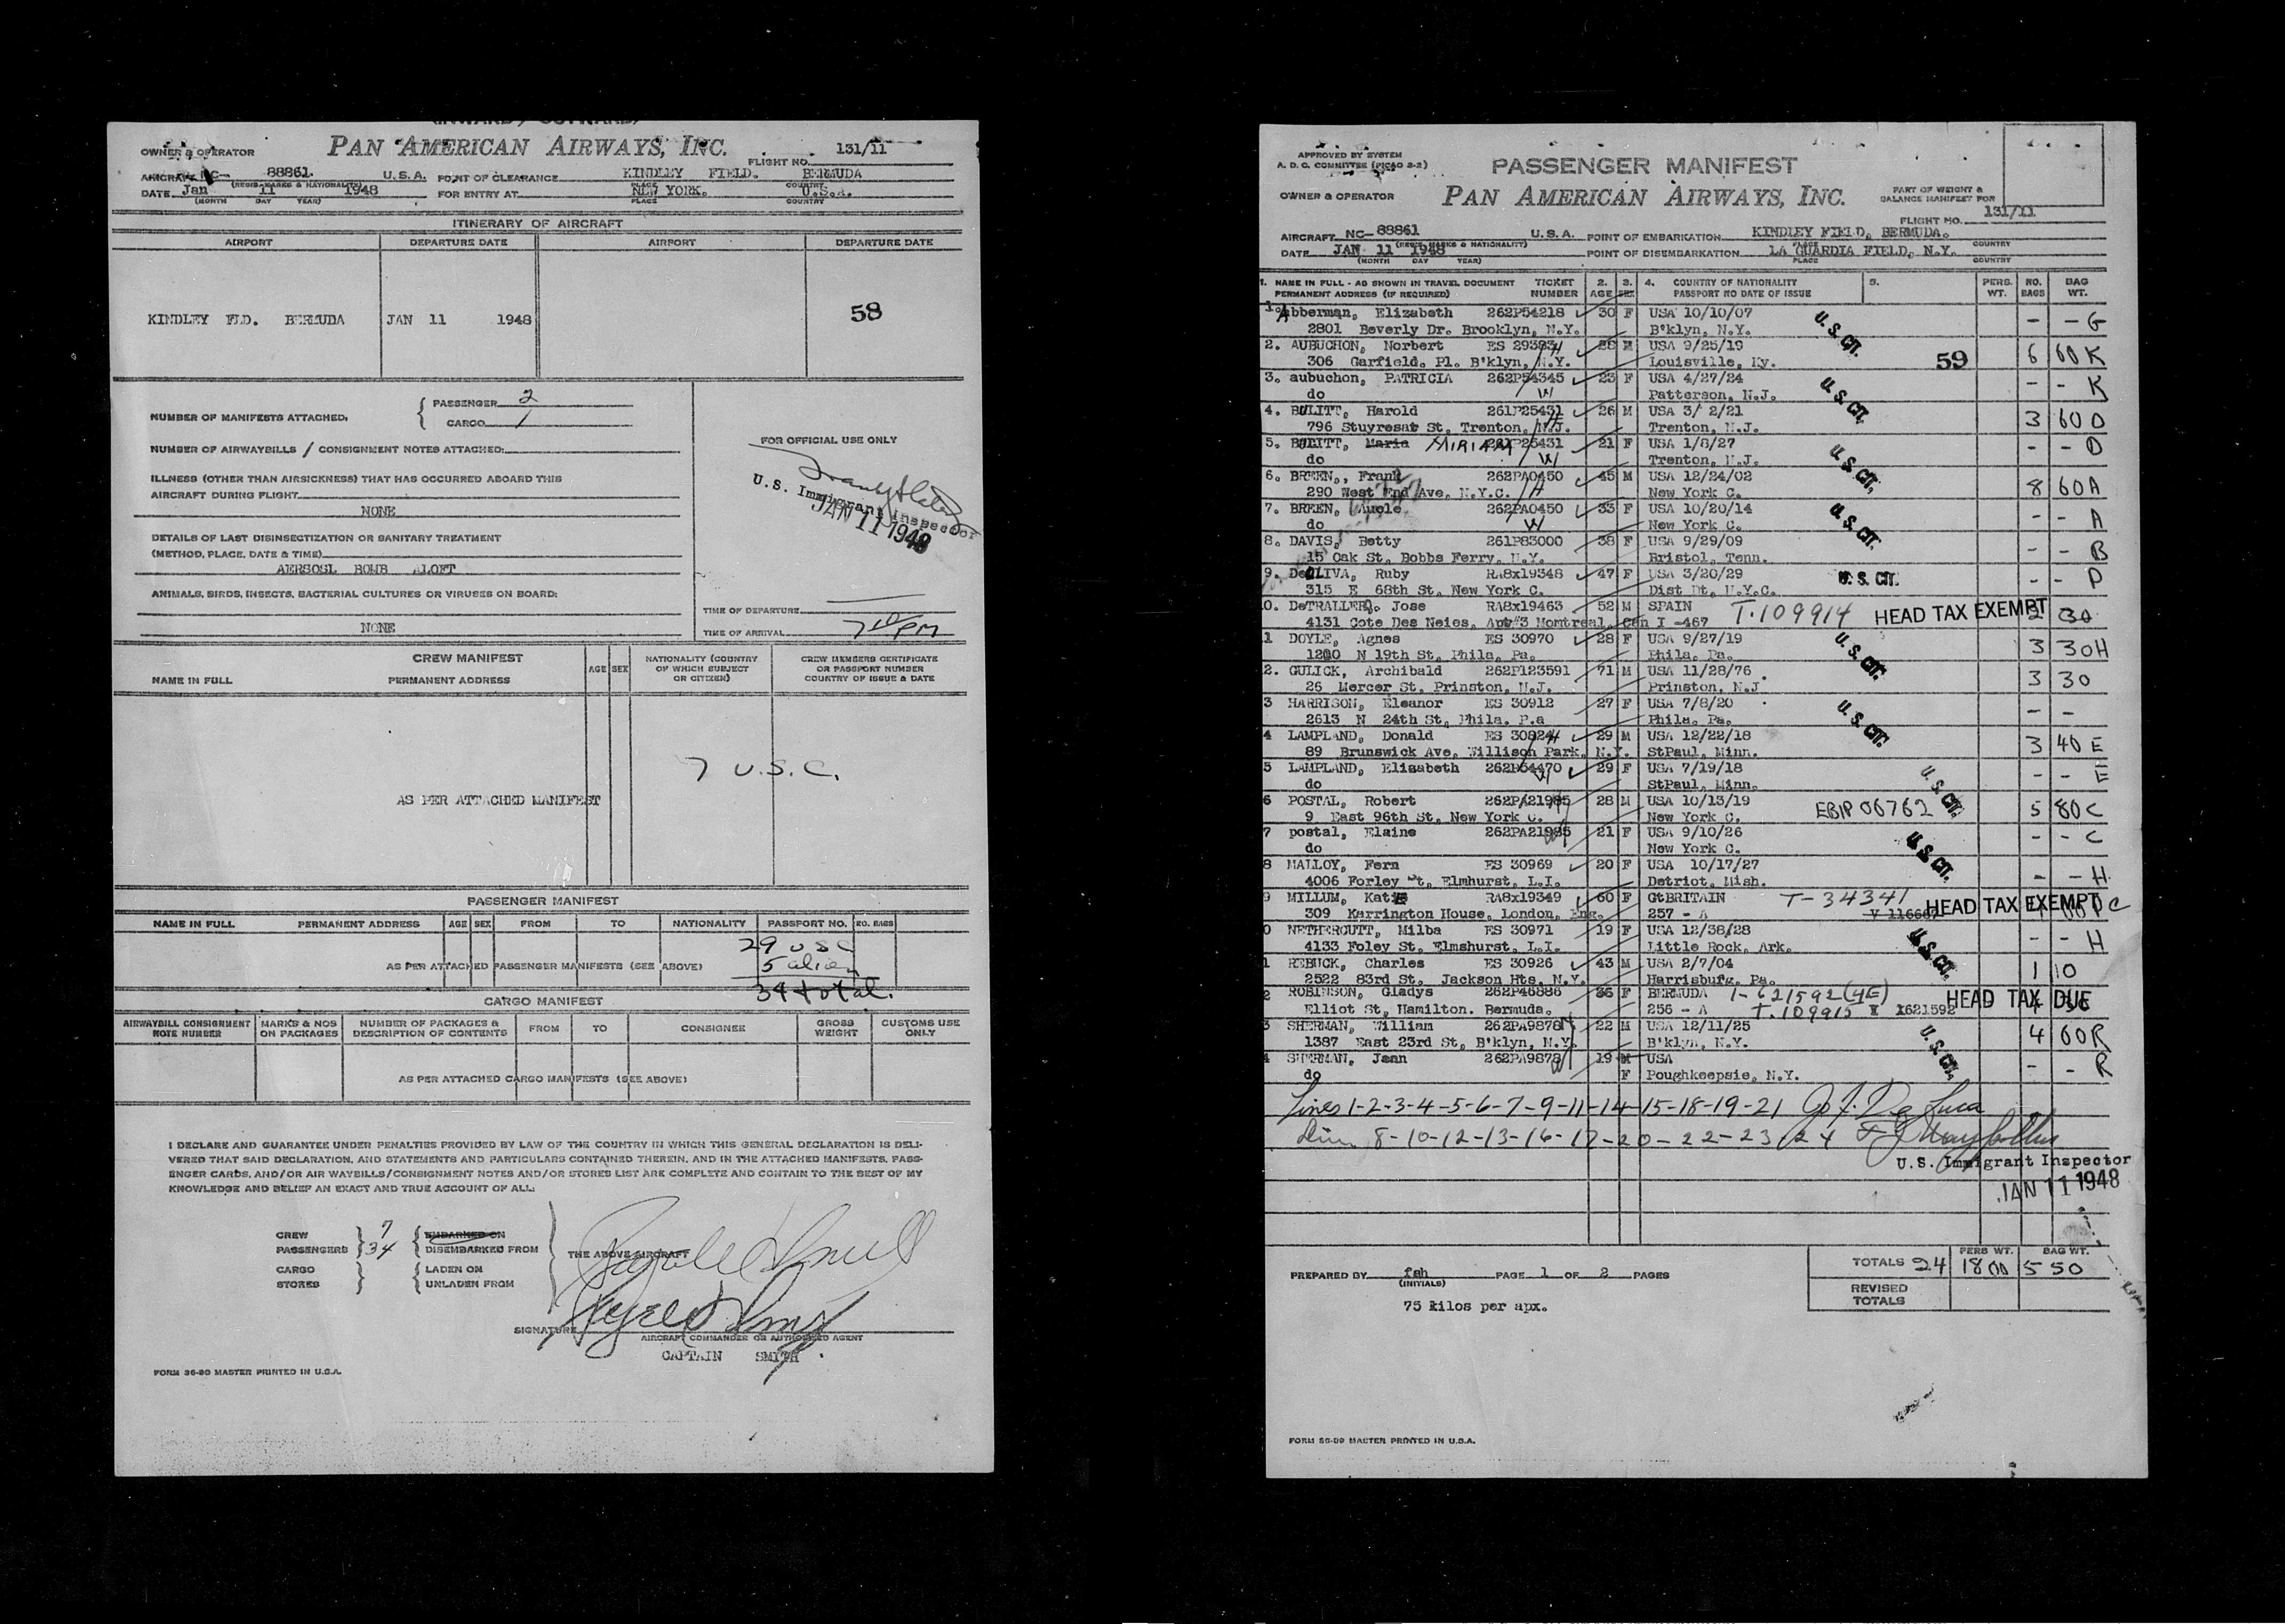 OWNER & OPERATOR PAN AMERICAN AIRWAYS, INC. FLIGHT NO. 131/11
AIRCRAFT NC- 88861. U.S.A. POINT OF CLEARANCE KINDLEY FIELD. BERMUDA
(REGIS. MARKS & NATIONALITY) PLACE COUNTRY
DATE Jan 11 1948 FOR ENTRY AT NEW YORK. U.S.A.
(MONTH DAY YEAR) PLACE COUNTRY
ITINERARY OF AIRCRAFT
AIRPORT DEPARTURE DATE AIRPORT DEPARTURE DATE
58
KINDLEY FLD. BERMUDA JAN 11 1948
NUMBER OF MANIFESTS ATTACHED: { PASSENGER 2
CARGO 1
NUMBER OF AIRWAYBILLS / CONSIGNMENT NOTES ATTACHED:
ILLNESS (OTHER THAN AIRSICKNESS) THAT HAS OCCURRED ABOARD THIS
AIRCRAFT DURING FLIGHT
NONE
DETAILS OF LAST DISINSECTIZATION OR SANITARY TREATMENT
(METHOD, PLACE, DATE & TIME)
AERSOSL BOMB ALOFT
ANIMALS, BIRDS, INSECTS, BACTERIAL CULTURES OR VIRUSES ON BOARD:
NONE
FOR OFFICIAL USE ONLY
U.S. Immigrant Inspector
JAN 11 1948
TIME OF DEPARTURE
TIME OF ARRIVAL 7 10 PM
CREW MANIFEST
NAME IN FULL PERMANENT ADDRESS AGE SEX NATIONALITY (COUNTRY OF WHICH SUBJECT OR CITIZEN) CREW MEMBERS CERTIFICATE OR PASSPORT NUMBER COUNTRY OF ISSUE & DATE
7 U.S.C.
AS PER ATTACHED MANIFEST
PASSENGER MANIFEST
NAME IN FULL PERMANENT ADDRESS AGE SEX FROM TO NATIONALITY PASSPORT NO. NO. BAGS
29 USC
AS PER ATTACHED PASSENGER MANIFESTS (SEE ABOVE) 5 alien
34 total.
CARGO MANIFEST
AIRWAYBILL CONSIGNMENT NOTE NUMBER MARKS & NOS ON PACKAGES NUMBER OF PACKAGES & DESCRIPTION OF CONTENTS FROM TO CONSIGNEE GROSS WEIGHT CUSTOMS USE ONLY
AS PER ATTACHED CARGO MANIFESTS (SEE ABOVE)
I DECLARE AND GUARANTEE UNDER PENALTIES PROVIDED BY LAW OF THE COUNTRY IN WHICH THIS GENERAL DECLARATION IS DELI-
VERED THAT SAID DECLARATION, AND STATEMENTS AND PARTICULARS CONTAINED THEREIN, AND IN THE ATTACHED MANIFESTS, PASS-
ENGER CARDS, AND/OR AIR WAYBILLS/CONSIGNMENT NOTES AND/OR STORES LIST ARE COMPLETE AND CONTAIN TO THE BEST OF MY
KNOWLEDGE AND BELIEF AN EXACT AND TRUE ACCOUNT OF ALL:
CREW 7 EMBARKED ON
PASSENGERS 34 DISEMBARKED FROM THE ABOVE AIRCRAFT
CARGO LADEN ON
STORES UNLADEN FROM
SIGNATURE
AIRCRAFT COMMANDER OR AUTHORIZED AGENT
CAPTAIN SMITH
FORM 36-80 MASTER PRINTED IN U.S.A.
APPROVED BY SYSTEM
A. D. C. COMMITTEE (PICAO 2-2) PASSENGER MANIFEST
OWNER & OPERATOR PAN AMERICAN AIRWAYS, INC. PART OF WEIGHT & BALANCE MANIFEST FOR
FLIGHT NO. 131/11
AIRCRAFT NC- 88861 U.S.A. POINT OF EMBARKATION KINDLEY FIELD, BERMUDA.
(REGIS. MARKS & NATIONALITY) PLACE COUNTRY
DATE JAN 11 1948 POINT OF DISEMBARKATION LA GUARDIA FIELD, N.Y.
(MONTH DAY YEAR) PLACE COUNTRY
1. NAME IN FULL - AS SHOWN IN TRAVEL DOCUMENT TICKET 2. 3. 4. COUNTRY OF NATIONALITY 5. PERS. NO. BAG
PERMANENT ADDRESS (IF REQUIRED) NUMBER AGE SEX PASSPORT NO DATE OF ISSUE WT. BAGS WT.
1. Abberman, Elizabeth 262P54218 30 F USA 10/10/07 U.S. CIT.
2801 Beverly Dr. Brooklyn, N.Y. B'klyn, N.Y. - - G
2. AUBUCHON, Norbert ES 29383 H 28 M USA 9/25/19 59
306 Garfield. Pl. B'klyn, N.Y. Louisville, Ky. 6 60 K
3. aubuchon, PATRICIA 262P54345 23 F USA 4/27/24 U.S. CIT.
do W Patterson, N.J. - - K
4. BULITT, Harold 261P25431 26 M USA 3/ 2/21
796 Stuyresat St. Trenton, N.J. Trenton, N.J. 3 60 D
5. BULITT, Maria MIRIAM 261P25431 21 F USA 1/8/27 U.S. CIT.
do W Trenton, N.J. - - D
6. BREEN,, Frank 262PA0450 45 M USA 12/24/02
290 West End Ave, N.Y.C. H New York C. 8 60 A
7. BREEN, 262PA0450 33 F USA 10/20/14 U.S. CIT.
do W New York C. - - A
8. DAVIS, Betty 261P83000 38 F USA 9/29/09
15 Oak St. Bobbs Ferry, N.Y. Bristol, Tenn. - - B
9. DeOLIVA, Ruby RA8x19348 47 F USA 3/20/29 U.S. CIT.
315 E 68th St. New York C. Dist Dt. N.Y.C. - - P
0. DeTRALLERO. Jose RA8x19463 52 M SPAIN T.109914 HEAD TAX EXEMPT
4131 Cote Des Neies, Apt#3 Momtreal, Can I -467 2 30
1 DOYLE, Agnes ES 30970 28 F USA 9/27/19 U.S. CIT.
1200 N 19th St, Phila, Pa. Phila. Pa. 3 30 H
2. GULICK, Archibald 262P123591 71 M USA 11/28/76
25 Mercer St. Prinston, N.J. Prinston, N.J 3 30
3 HARRISON, Eleanor ES 30912 27 F USA 7/8/20 U.S. CIT.
2613 N 24th St, Phila. P.a Phila. Pa. - -
4 LAMPLAND, Donald ES 30824 H 29 M USA 12/22/18
89 Brunswick Ave, Willison Park, N.Y. StPaul, Minn. 3 40 E
5 LAMPLAND, Elizabeth 262P54470 29 F USA 7/19/18 U.S. CIT.
do W StPaul, Minn. - - E
6 POSTAL, Robert 262PA21985 28 M USA 10/13/19 EBIP 06762
9 East 96th St, New York C. New York C. 5 80 C
7 postal, Elaine 262PA21985 21 F USA 9/10/26 U.S. CIT.
do New York C. - - C
8 MALLOY, Fern ES 30969 20 F USA 10/17/27
4006 Forley St, Elmhurst, L.I. Detriot, Mish. - - H
9 MILLUM, Katie RA8x19349 60 F GtBRITAIN T-34341 HEAD TAX EXEMPT
309 Karrington House, London, Eng. 257 - A C
0 NETHERCUTT, Milba ES 30971 19 F USA 12/38/28 U.S. CIT.
4133 Foley St, Elmshurst, L.I. Little Rock, Ark. - - H
1 REBUCK, Charles ES 30926 43 M USA 2/7/04
2522 83rd St, Jackson Hts, N.Y. Harrisburg, Pa. 1 10
2 ROBINSON, Gladys 262P46886 36 F BERMUDA 1-621592 (4E) HEAD TAX DUE
Elliot St, Hamilton. Bermuda. 256 - A T.109915 I621592
3 SHERMAN, William 262PA9878 H 22 M USA 12/11/25 U.S. CIT.
1387 East 23rd St, B'klyn, N.Y. B'klyn, N.Y. 4 60 R
4 SHERMAN, Jean 262PA9878 W 19 M USA
do F Poughkeepsie, N.Y. - - R
Lines 1-2-3-4-5-6-7-9-11-14-15-18-19-21
8-10-12-13-16-17-20-22-23 24
U.S. Immigrant Inspector
JAN 11 1948
PREPARED BY fsh PAGE 1 OF 2 PAGES
(INITIALS)
75 kilos per apx.
PERS WT. BAG WT.
TOTALS 24 1800 550
REVISED TOTALS
FORM 36-09 MASTER PRINTED IN U.S.A.